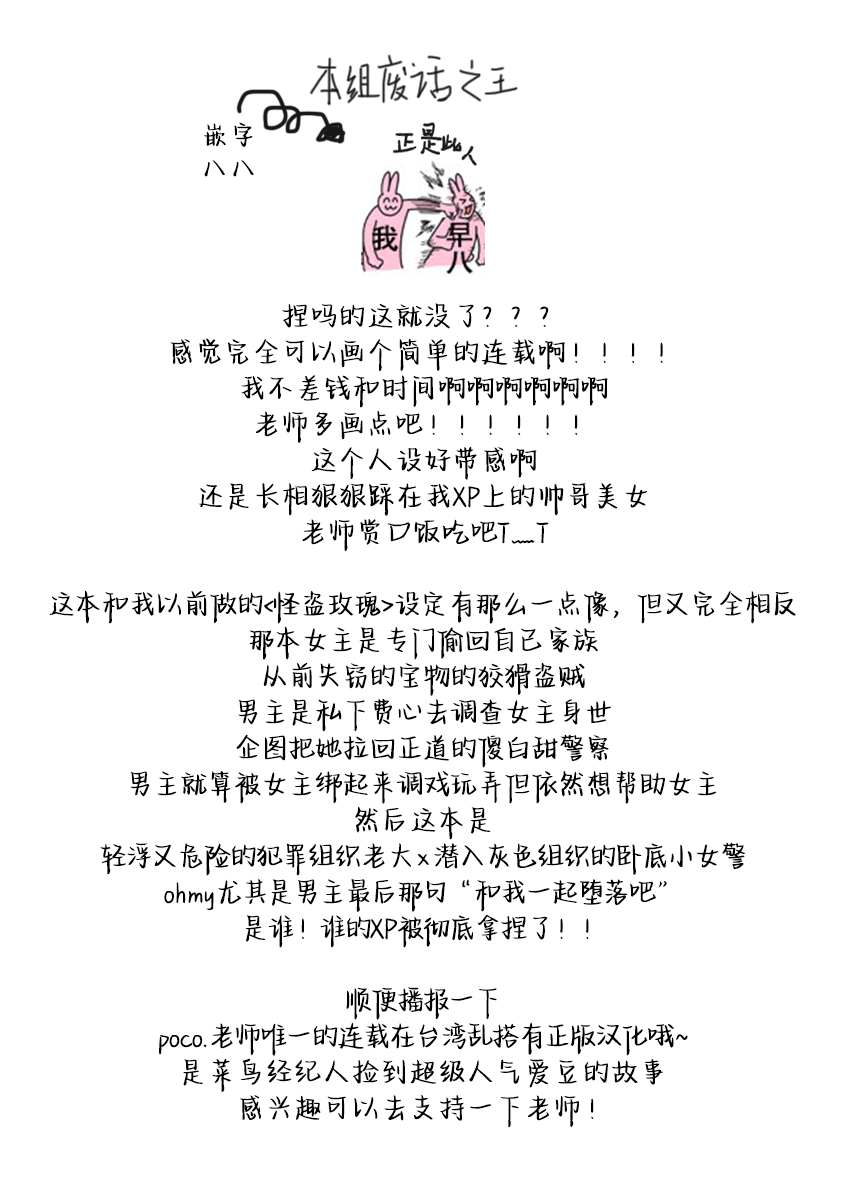 本组废话之王
嵌字
八八
正是此人
我
早八
捏吗的这就没了？？？
感觉完全可以画个简单的连载啊！！！！
我不差钱和时间啊啊啊啊啊啊
老师多画点吧！！！！！！
这个人设好带感啊
还是长相狠狠踩在我XP上的帅哥美女
老师赏口饭吃吧T﹏T
这本和我以前做的<怪盗玫瑰>设定有那么一点像，但又完全相反
那本女主是专门偷回自己家族
从前失窃的宝物的狡猾盗贼
男主是私下费心去调查女主身世
企图把她拉回正道的傻白甜警察
男主就算被女主绑起来调戏玩弄但依然想帮助女主
然后这本是
轻浮又危险的犯罪组织老大x潜入灰色组织的卧底小女警
ohmy尤其是男主最后那句“和我一起堕落吧”
是谁！谁的XP被彻底拿捏了！！
顺便播报一下
poco.老师唯一的连载在台湾乱搭有正版汉化哦~
是菜鸟经纪人捡到超级人气爱豆的故事
感兴趣可以去支持一下老师！